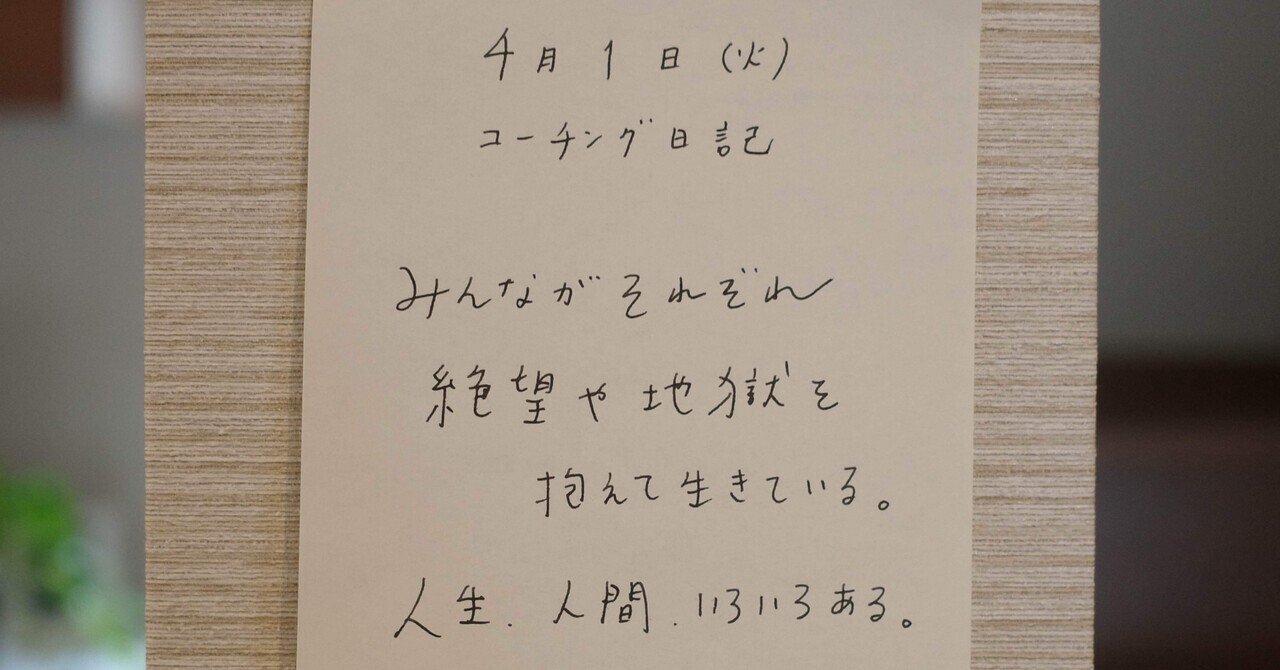 4月1日(火)
コーチング日記
みんながそれぞれ
絶望や地獄を
抱えて生きている。
人生.人間.いろいろある。